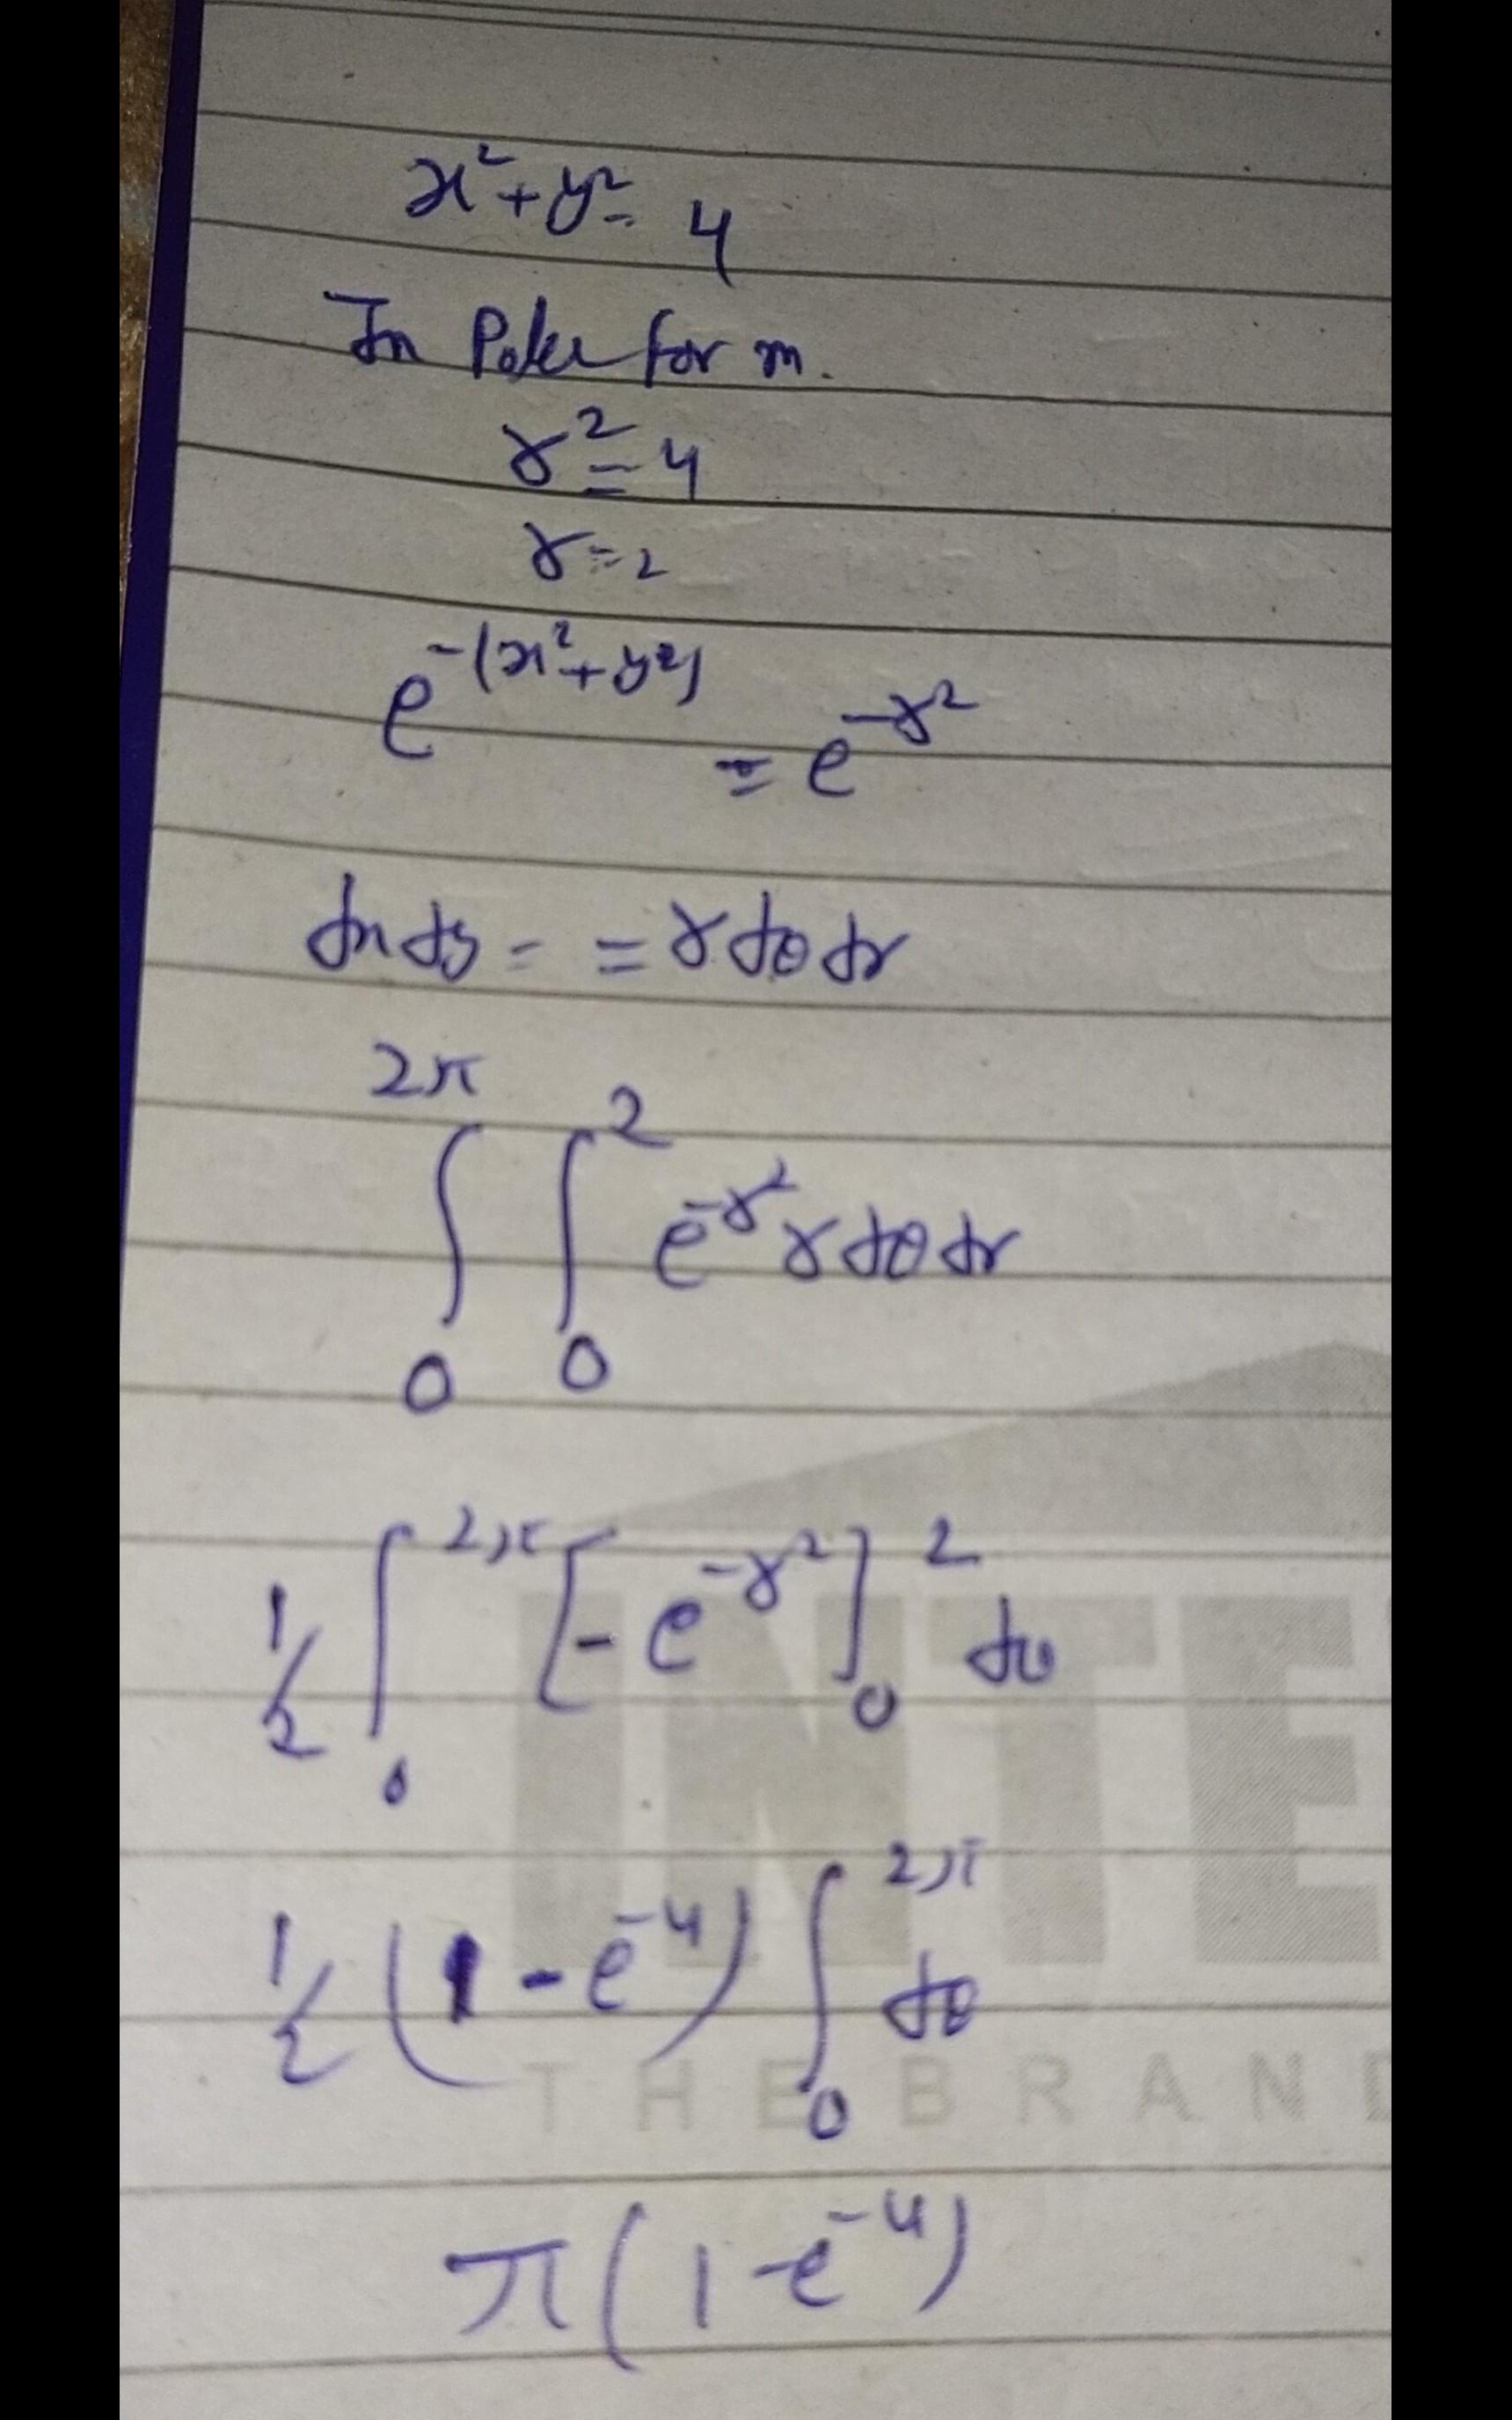 x² + y² = 4
In Polar form.
r² = 4
r = 2
e^-(x²+y²) = e^-r²
dx dy - = r dθ dr
∫₀^2π ∫₀^2 e^-r² r dθ dr
1/2 ∫₀^2π [-e^-r²]₀^2 dθ
1/2 (1 - e^-4) ∫₀^2π dθ
π(1 - e^-4)
INTE
THE BRAND